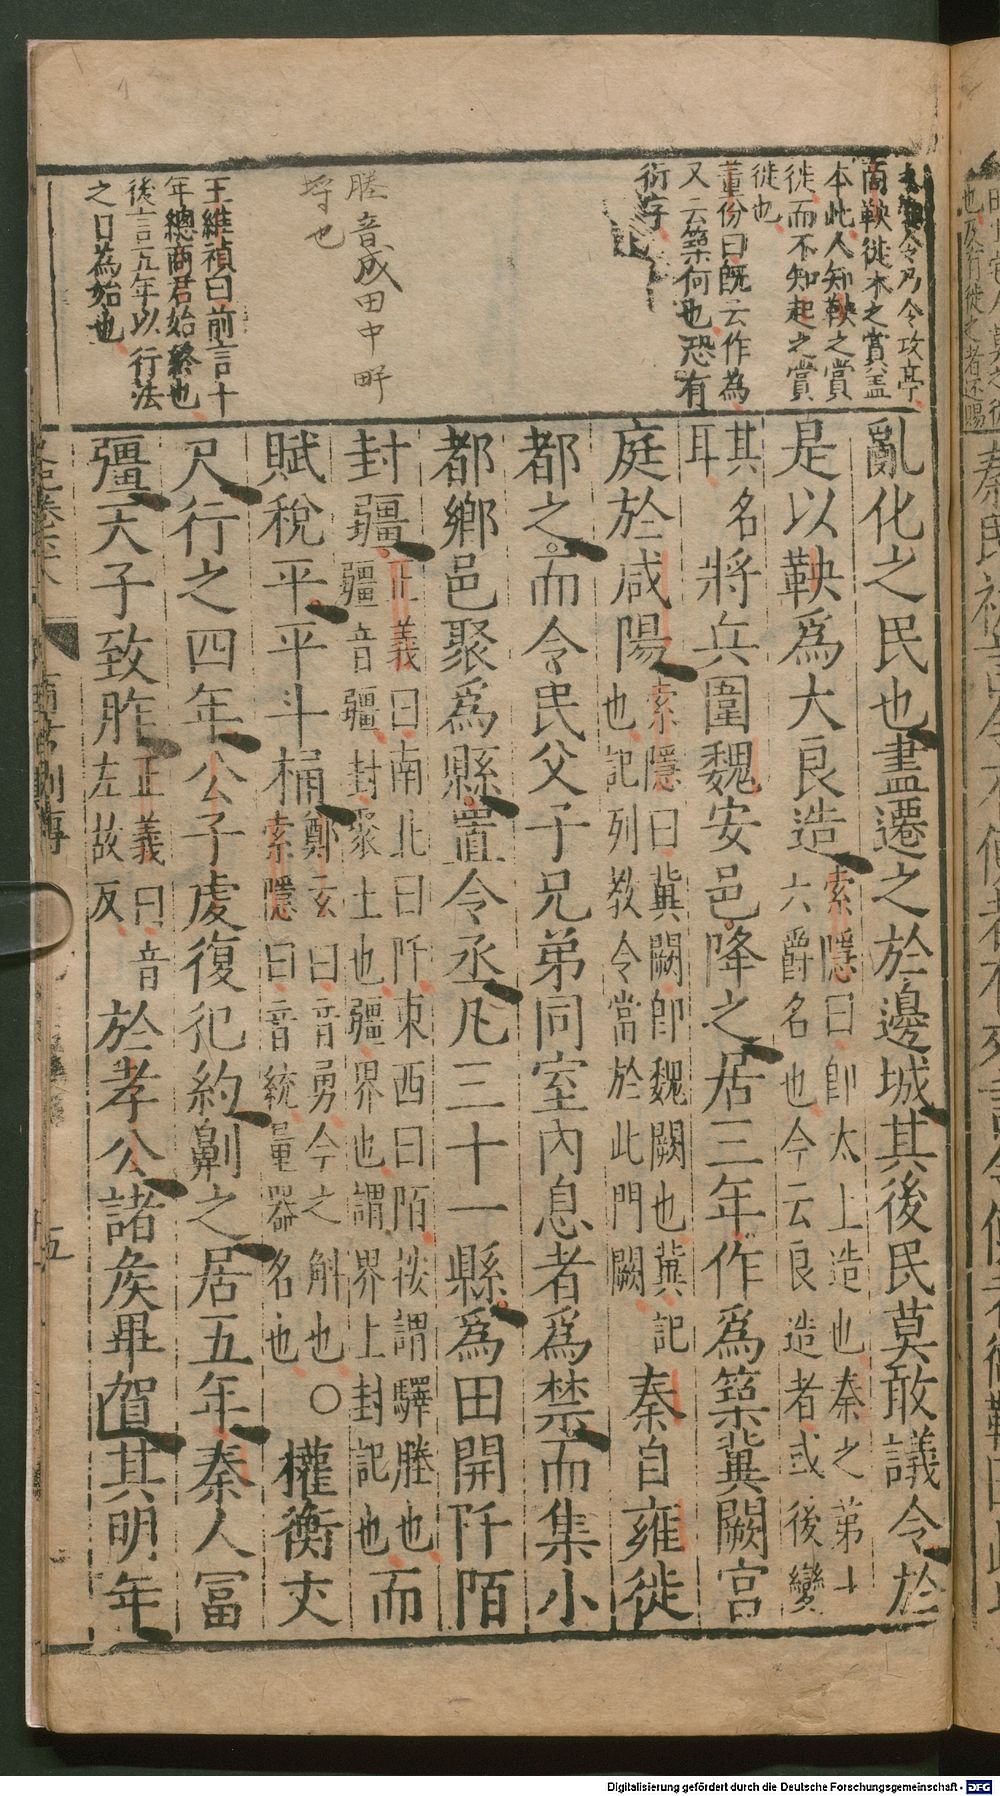 令乃令攻亭
商鞅徙木之賞盖
本此人知鞅之賞
徙而不知起之賞
徙也
董份曰旣云作為
又云築何也恐有
衍字
塍音成田中畔
埓也
王維禎曰前言十
年總商君始終也
後言五年以行法
之日為始也
亂化之民也盡遷之於邊城其後民莫敢議令於
是以鞅爲大良造索隱曰卽太上造也秦之弟十六爵名也今云良造者或後變
其名耳將兵圍魏安邑降之居三年作爲築冀闕宫
庭於咸陽索隱曰冀闕卽魏闕也冀記也記列教令當於此門闕秦自雍徙
都之而令民父子兄弟同室內息者爲禁而集小
都鄉邑聚爲縣置令丞凡三十一縣爲田開阡陌
封疆正義曰南北曰阡東西曰陌按謂驛塍也疆音疆封聚土也疆界也謂界上封記也而
賦稅平平斗桶鄭玄曰音勇今之斛也索隱曰音統量器名也○權衡丈
尺行之四年公子虔復犯約劓之居五年秦人冨
彊天子致胙正義曰音左故反於孝公諸矦畢賀其明年
史記卷六十八
商君列傳
五
Digitalisierung gefördert durch die Deutsche Forschungsgemeinschaft - DFG